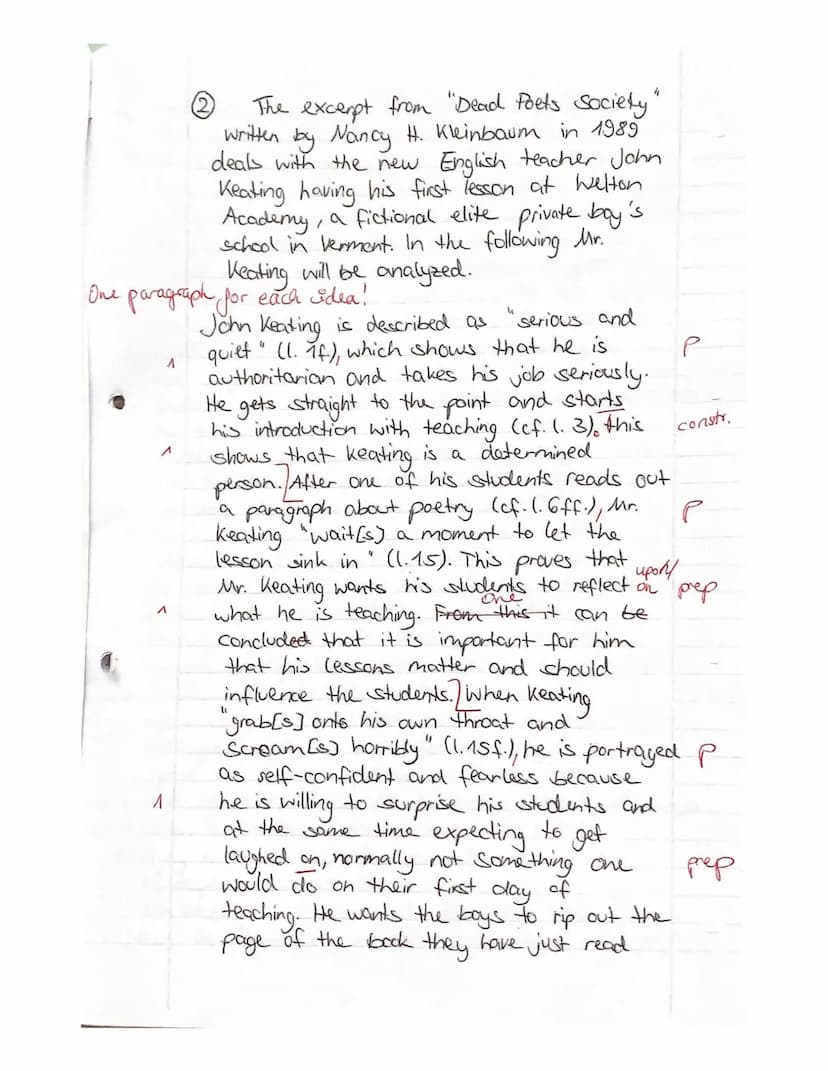 ② The excerpt from "Dead Poets Society"
written by Nancy H. Kleinbaum in 1989
deals with the new English teacher John
Keating having his first lesson at Welton
Academy, a fictional elite private boy's
school in Vermont. In the following Mr.
Keating will be analyzed.
One paragraph for each idea!
John Keating is described as "serious and
quiet" (l. 1f.), which shows that he is P
1 authoritarian and takes his job seriously.
He gets straight to the point and starts
his introduction with teaching (cf. l. 3). this constr.
1 shows that Keating is a determined
person. After one of his students reads out
a paragraph about poetry (cf. l. 6ff.), Mr. P
Keating "wait[s] a moment to let the
lesson sink in" (l. 15). This proves that
upon/
Mr. Keating wants his students to reflect on prep
One
1 what he is teaching. From this it can be
concluded that it is important for him
that his lessons matter and should
influence the students. When Keating
"grab[s] onto his own throat and
scream[s] horribly" (l. 15f.), he is portrayed P
as self-confident and fearless because
1 he is willing to surprise his students and
at the same time expecting to get
laughed on, normally not something one prep
would do on their first day of
teaching. He wants the boys to rip out the
page of the book they have just read